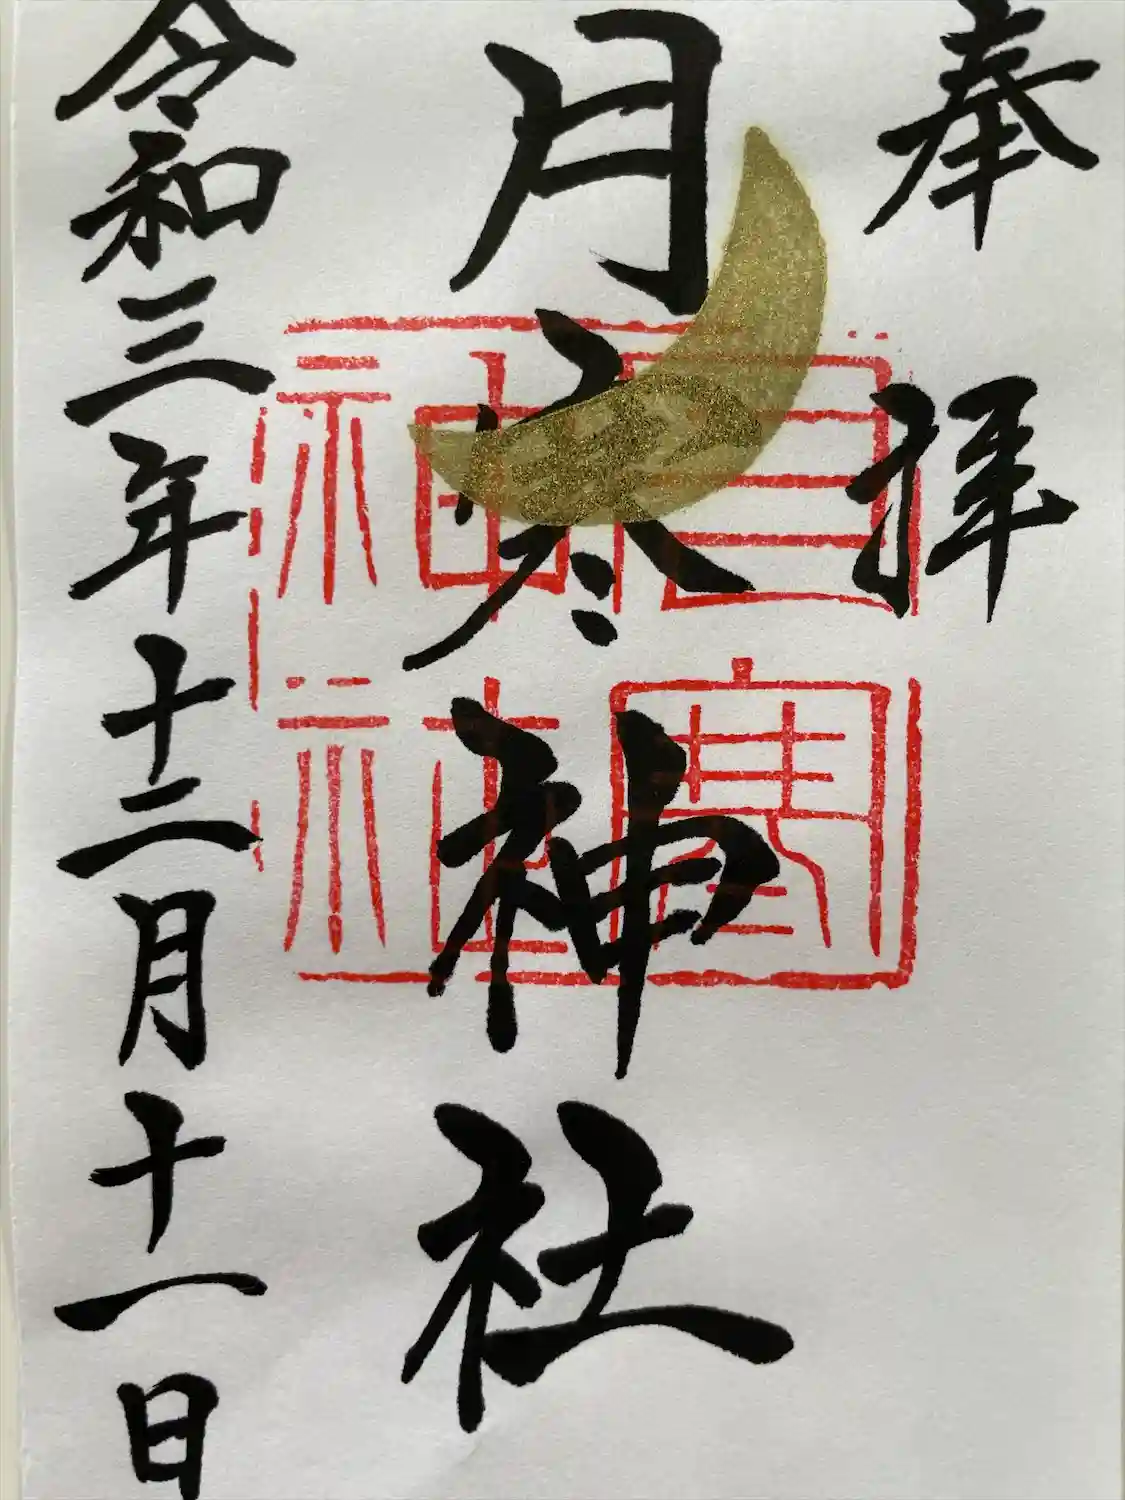 奉拝
月寒神社
月寒神社
令和三年十二月十一日